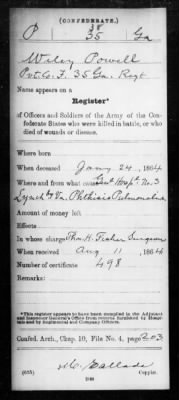 (CONFEDERATE.)
P 38 35 Ga
Wiley Powell
Pvt. Co. F. 35 Ga. Regt
Name appears on a
Register*
of Officers and Soldiers of the Army of the Con-
federate States who were killed in battle, or who
died of wounds or disease.
Where born
When deceased Jany 24, 1864
Where and from what cause Genl Hospt. No. 3
Lynchbg Va. Phthisis Pulmonalis
Amount of money left
Effects
In whose charge Thos. H. Fisher Surgeon
When received Aug 11, 1864
Number of certificate 498
Remarks:
*This register appears to have been compiled in the Adjutant
and Inspector General's Office from records furnished by Hospi-
tals and by Regimental and Company Officers.
Confed. Arch., Chap. 10, File No. 4, page 203
(635)
Copyist.